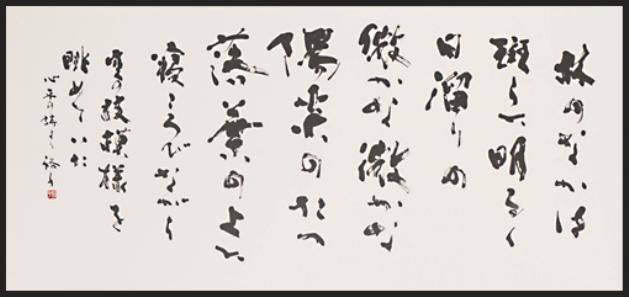 林のなかは
斑らに明るく
日溜りの
微かな微かな
陽炎のたつ
落葉の上に
寝ころびながら
の模様を
眺めていた
心平の詩より